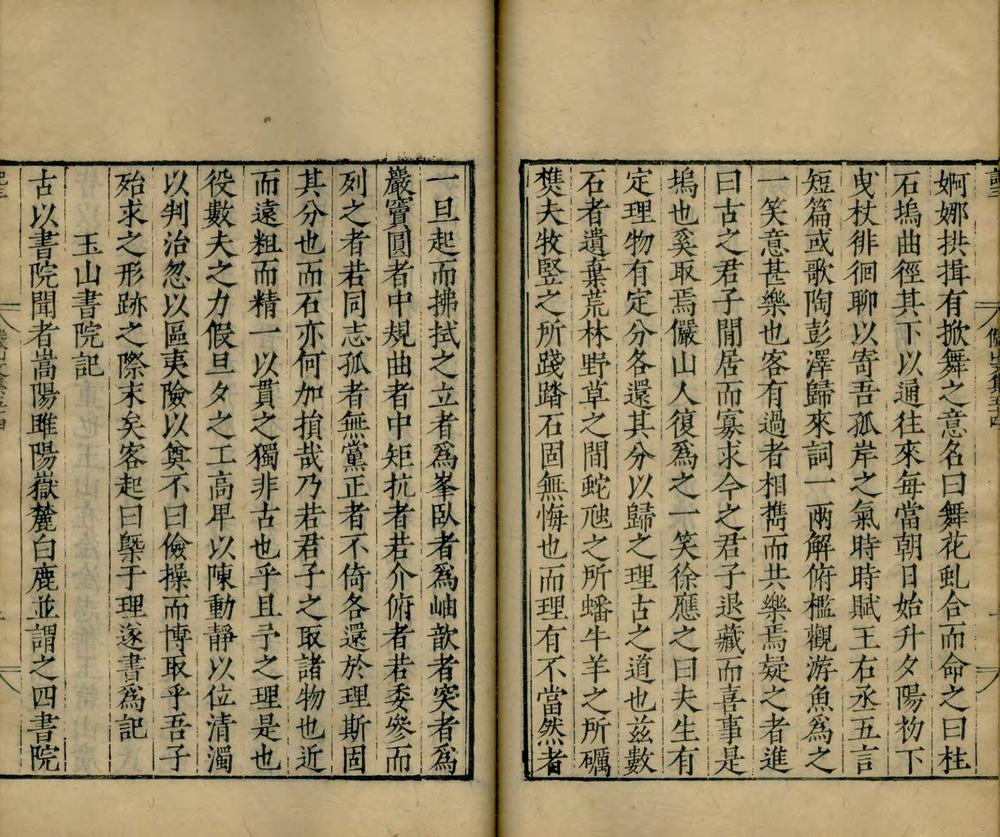 婀娜拱揖有掀舞之意名曰舞花虬合而命之曰桂
石塢曲徑其下以通往來每當朝日始升夕陽初下
曳杖徘徊聊以寄吾孤岸之氣時時賦王右丞五言
短篇或歌陶彭澤歸來詞一兩解俯檻觀游魚爲之
一笑意甚樂也客有過者相攜而共樂焉疑之者進
曰古之君子閒居而寡求今之君子退藏而喜事是
塢也奚取焉儼山人復爲之一笑徐應之曰夫生有
定理物有定分各還其分以歸之理古之道也茲數
石者遺棄荒林野草之間蛇虺之所蟠牛羊之所礪
樵夫牧豎之所踐踏石固無悔也而理有不當然者
一旦起而拂拭之立者爲峯臥者爲岫歆者突者爲
巖竇圓者中規曲者中矩抗者若介俯者若委參而
列之者若同志孤者無黨正者不倚各還於理斯固
其分也而石亦何加損哉乃若君子之取諸物也近
而遠粗而精一以貫之獨非古也乎且予之理是也
役數夫之力假旦夕之工高卑以陳動靜以位清濁
以判治忽以區夷險以奠不曰儉操而博取乎吾子
殆求之形跡之際末矣客起曰槩于理遂書爲記
玉山書院記
古以書院聞者嵩陽睢陽嶽麓白鹿並謂之四書院